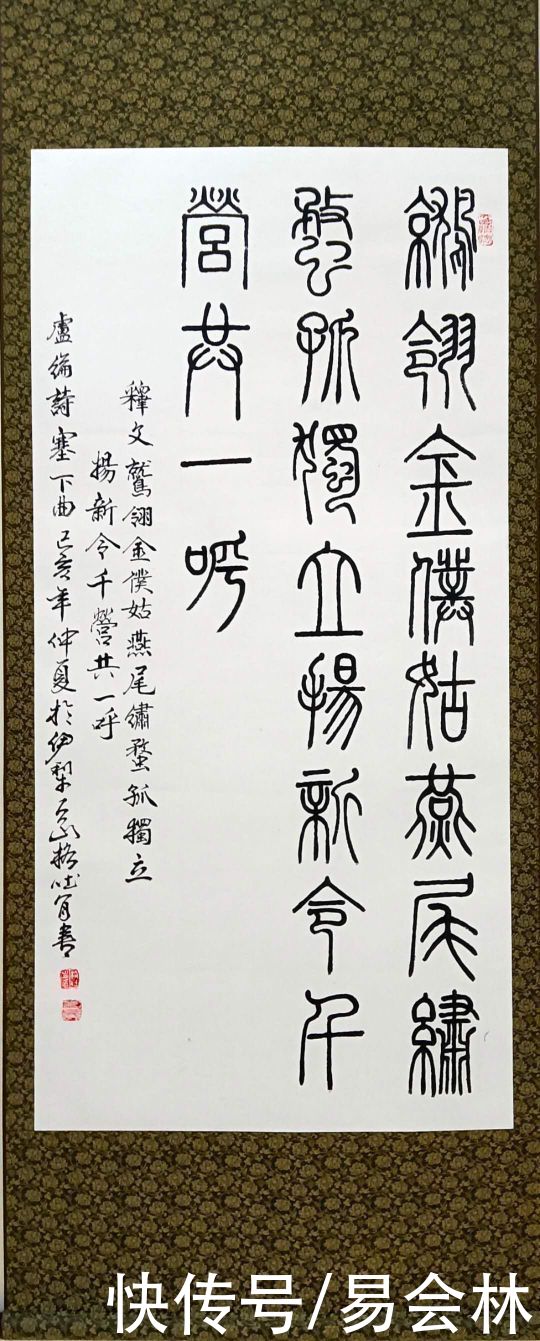 鷲翎金僕姑燕尾繡
蝥孤獨立揚新令千
營共一呼
釋文 鷲翎金僕姑燕尾繡蝥孤獨立
揚新令千營共一呼
盧綸詩塞下曲 己亥年仲夏於伊犁 書
快传号/易会林